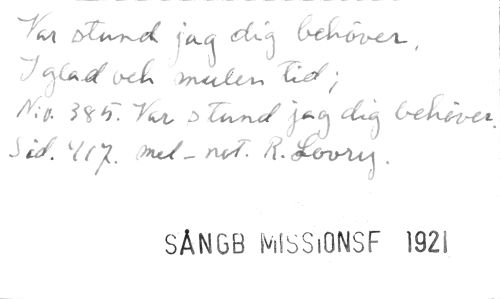 Var stund jag dig behöver,
I glad och mulen tid;
N:o. 385. Var stund jag dig behöver
Sid. 417. mel-not. R. Lovry.
SÅNGB MISSIONSF 1921